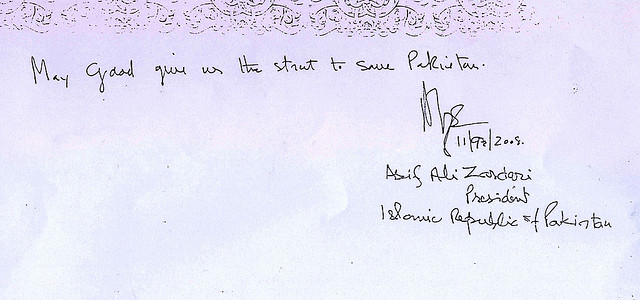 May Goad give us the strut to save Pakistan.
11/9/2009.
Asif Ali Zardari
President
Islamic Republic of Pakistan